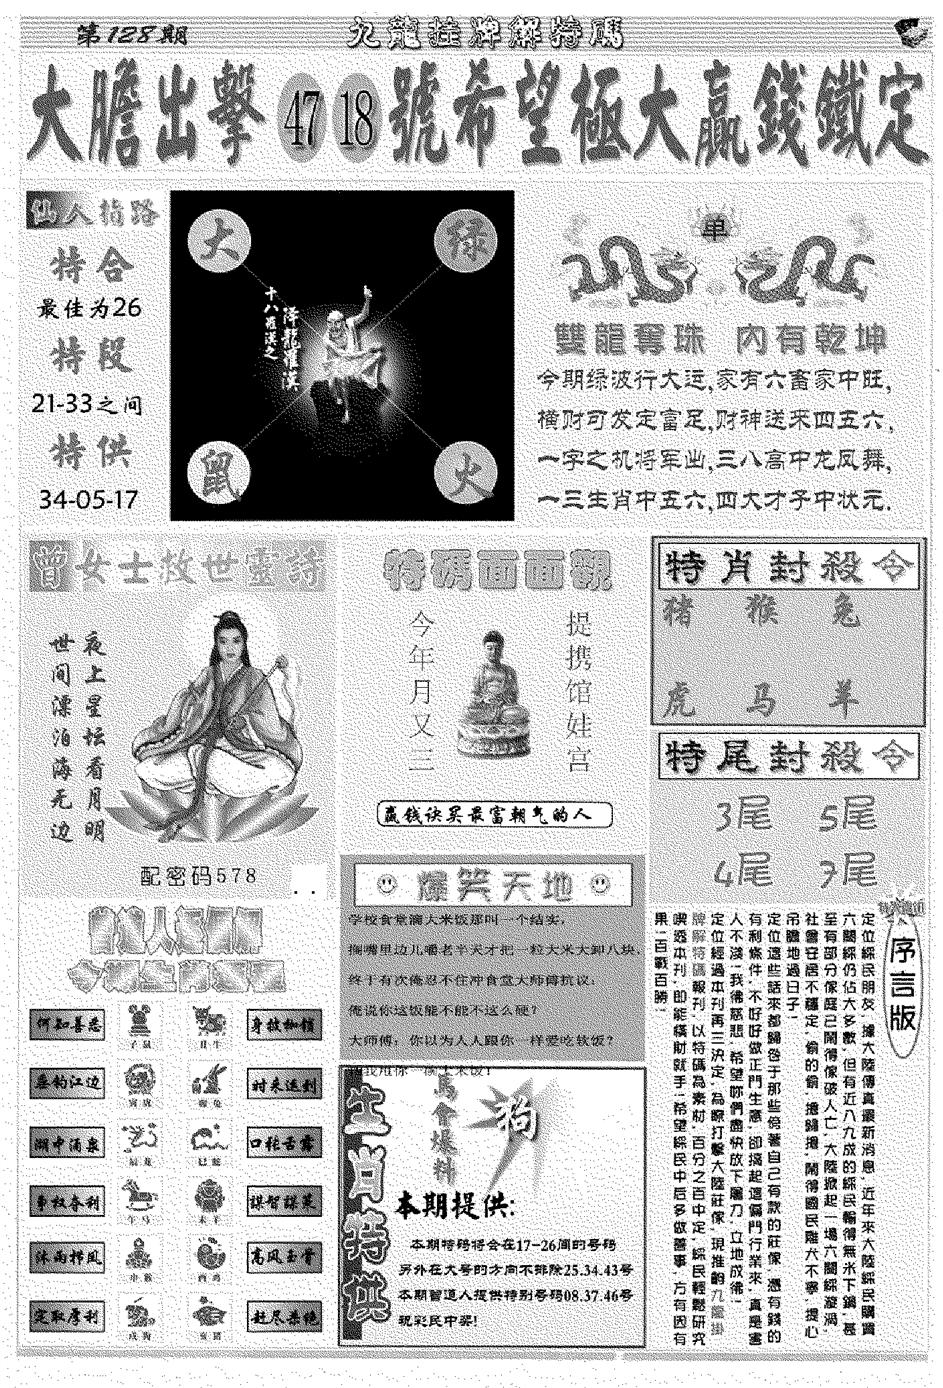 第128期
九龍挂牌解特碼
大膽出擊 47 18 號希望極大贏錢鐵定
仙人指路
特合
最佳为26
特段
21-33之间
特供
34-05-17
大
绿
十八羅漢之
降龍羅漢
鼠
火
单
雙龍奪珠 内有乾坤
今期绿波行大运,家有六畜家中旺,
横财可发定富足,财神送来四五六,
一字之机将军出,三八高中龙凤舞,
一三生肖中五六,四大才子中状元.
曾女士救世靈詩
夜上星坛看月明
世间漂泊海无边
配密码578
特碼面面觀
提携馆娃宫
今年月又三
赢钱诀买最富朝气的人
特肖封殺令
猪 猴 兔
虎 马 羊
特尾封殺令
3尾 5尾
4尾 7尾
爆笑天地
学校食堂滴大米饭那叫一个结实,
搁嘴里边儿嚼老半天才把一粒大米大卸八块,
终于有次俺忍不住冲食堂大师傅抗议:
俺说你这饭能不能不这么硬?
大师傅: 你以为人人跟你一样爱吃软饭?
何知善恶
子鼠
丑牛
身披枷锁
垂钓江边
寅虎
卯兔
时来运到
湖中涌泉
辰龙
巳蛇
口长舌露
争权夺利
午马
未羊
谋智谋策
沐雨栉风
申猴
酉鸡
高风玉骨
定取厚利
戌狗
亥猪
赶尽杀绝
生肖特供
馬會爆料
狗
本期提供:
本期特码将会在17-26间的号码
另外在大号的方向不排除25.34.43号
本期曾道人提供特别号码08.37.46号
祝彩民中奖!
序言版
定位綵民朋友,據大陸傳真最新消息,近年來大陸綵民購買
六關綵仍佔大多數,但有近八九成的綵民輸得無米下鍋,甚
至有部分傢庭己鬧得傢破人亡,大陸掀起一場六關綵漩渦,
社會安居不穩定,偷的偷,搶歸搶,鬧得國民雞犬不寧,提心
吊膽地過日子!
定位這些話來都歸咎于那些傍著自己有款的莊傢,憑有錢的
有利條件,不好好做正門生意,卻搞起這偏門行業來,真是害
人不淺!我彿慈悲,希望妳們盡快放下屠刀,立地成彿!
定位經過本刊再三決定,為瞭打擊大陸莊傢,現推齣九龍掛
牌解特碼報刊,以特碼為素材,百分之百中定,綵民輕鬆研究
噢透本刊,即能橫財就手!希望綵民中后多做善事,方有因有
果!百戰百勝!